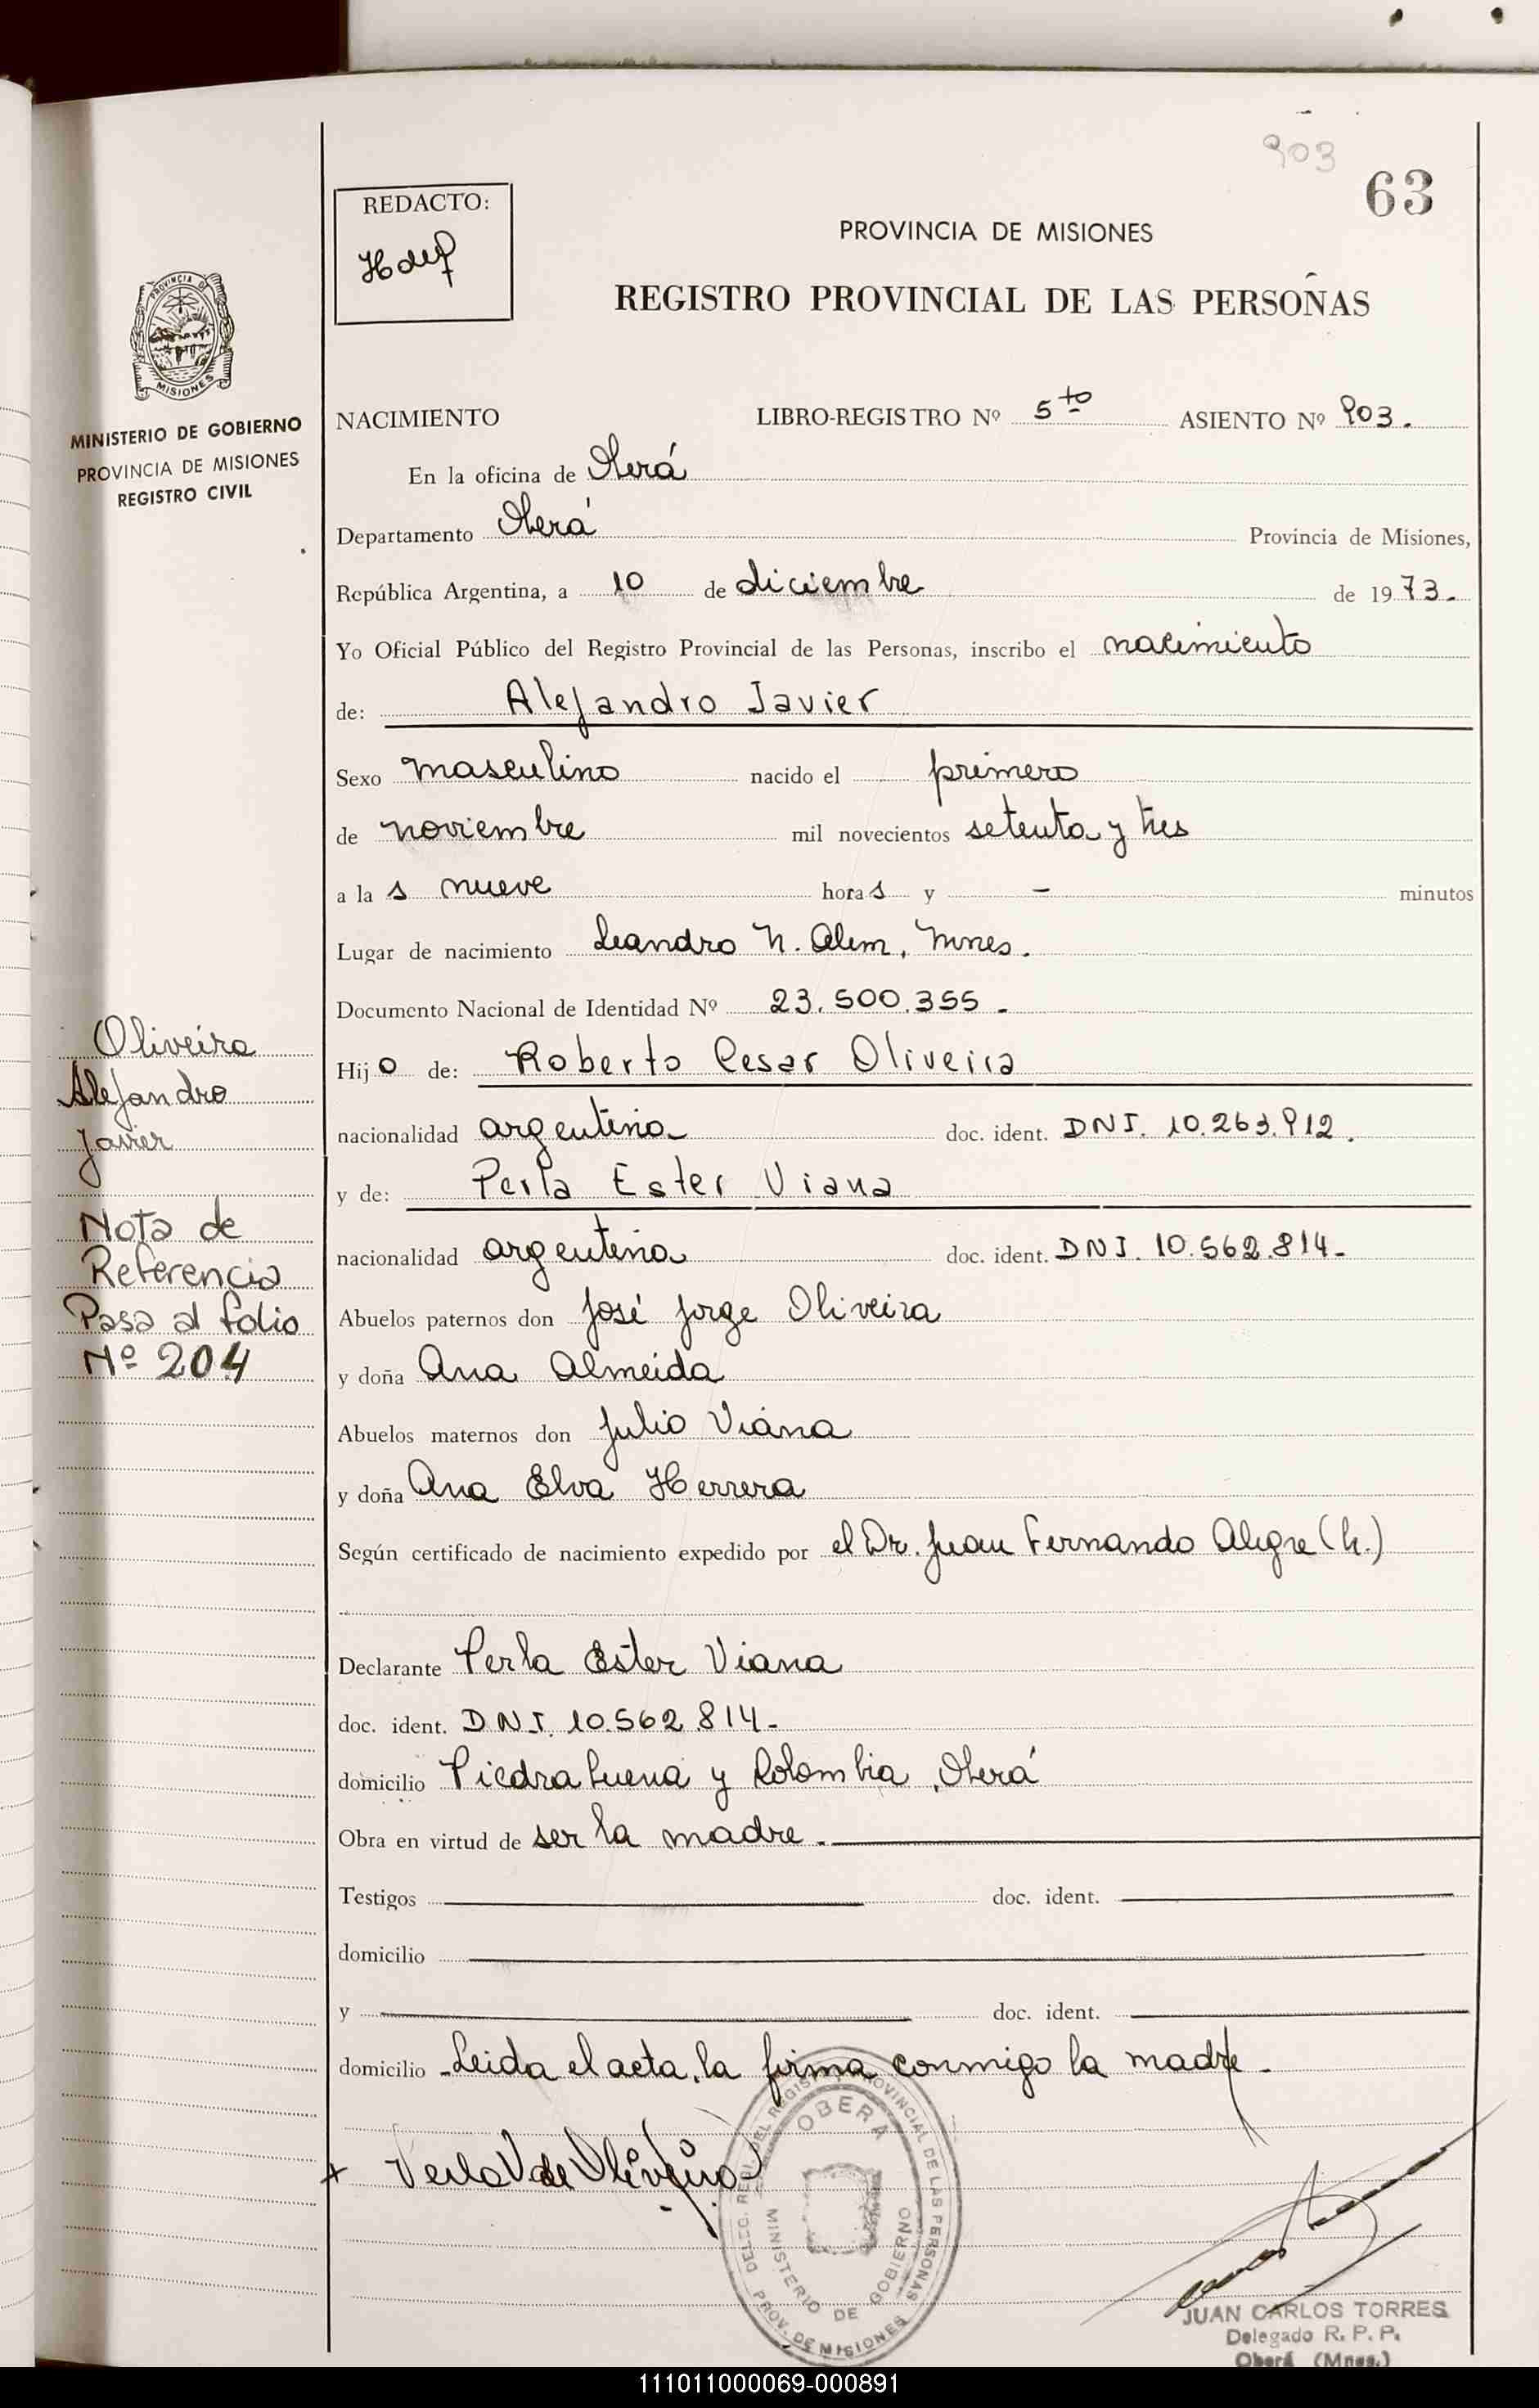 903
63
REDACTO:
PROVINCIA DE MISIONES
REGISTRO PROVINCIAL DE LAS PERSONAS
PROVINCIA DE
MISIONES
MINISTERIO DE GOBIERNO
PROVINCIA DE MISIONES
REGISTRO CIVIL
NACIMIENTO LIBRO-REGISTRO Nº 5to ASIENTO Nº 903.
En la oficina de Oberá
Departamento Oberá Provincia de Misiones,
República Argentina, a 10 de diciembre de 1973.-
Yo Oficial Público del Registro Provincial de las Personas, inscribo el nacimiento
de: Alejandro Javier
Sexo masculino nacido el primero
de noviembre mil novecientos setenta y tres
a la s nueve hora s y - minutos
Lugar de nacimiento Leandro N. Alem, Mnes.
Documento Nacional de Identidad Nº 23.500.355-
Hij o de: Roberto Cesar Oliveira
nacionalidad argentina doc. ident. DNI. 10.263.912.
y de: Perla Ester Viana
nacionalidad argentina doc. ident. DNI. 10.562.814-
Abuelos paternos don José Jorge Oliveira
y doña Ana Almeida
Abuelos maternos don Julio Viana
y doña Ana Elva Herrera
Según certificado de nacimiento expedido por el Dr. Juan Fernando Alegre (h.)
Declarante Perla Ester Viana
doc. ident. DNI. 10.562.814-
domicilio Piedrabuena y Colombia, Oberá
Obra en virtud de ser la madre.
Testigos doc. ident.
domicilio
y doc. ident.
domicilio - Leida el acta, la firma conmigo la madre -
Oliveira
Alejandro
Javier
Nota de
Referencia
Pasa al folio
Nº 204
Perla V de Oliveira
DELEG. REGL. DEL REGISTRO PROVINCIAL DE LAS PERSONAS
OBERA
MINISTERIO DE GOBIERNO
PROV. DE MISIONES
JUAN CARLOS TORRES
Delegado R. P. P.
Oberá (Mnes.)
111011000069-000891